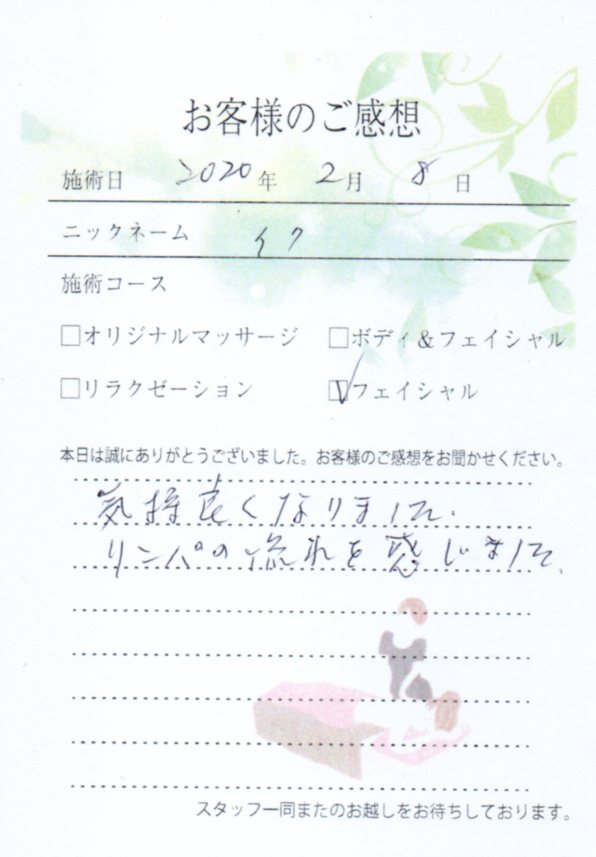 お客様のご感想
施術日 2020年 2月 8日
ニックネーム イク
施術コース
□オリジナルマッサージ □ボディ&フェイシャル
□リラクゼーション ☑フェイシャル
本日は誠にありがとうございました。お客様のご感想をお聞かせください。
気持良くなりました.
リンパの流れを感じました.
スタッフ一同またのお越しをお待ちしております。